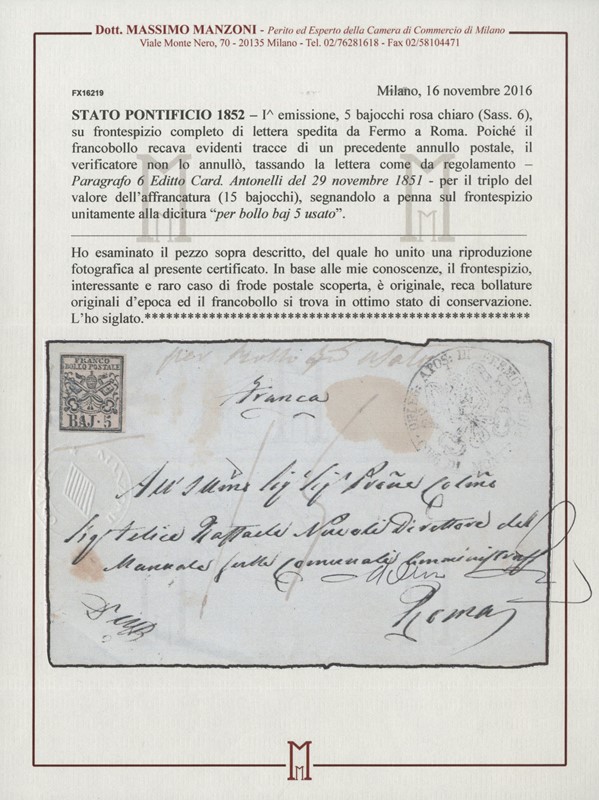 Dott. MASSIMO MANZONI - Perito ed Esperto della Camera di Commercio di Milano
Viale Monte Nero, 70 - 20135 Milano - Tel. 02/76281618 - Fax 02/58104471
FX16219
Milano, 16 novembre 2016
STATO PONTIFICIO 1852 – I^ emissione, 5 bajocchi rosa chiaro (Sass. 6),
su frontespizio completo di lettera spedita da Fermo a Roma. Poiché il
francobollo recava evidenti tracce di un precedente annullo postale, il
verificatore non lo annullò, tassando la lettera come da regolamento –
Paragrafo 6 Editto Card. Antonelli del 29 novembre 1851 - per il triplo del
valore dell'affrancatura (15 bajocchi), segnandolo a penna sul frontespizio
unitamente alla dicitura “per bollo baj 5 usato”.
Ho esaminato il pezzo sopra descritto, del quale ho unito una riproduzione
fotografica al presente certificato. In base alle mie conoscenze, il frontespizio,
interessante e raro caso di frode postale scoperta, è originale, reca bollature
originali d'epoca ed il francobollo si trova in ottimo stato di conservazione.
L'ho siglato.****************************************************
per bollo baj 5 usato
FRANCO
BOLLO POSTALE
BAJ. 5
Franca
DELEG. APOS. DI FERMO
15
All'
Sig Felice Raffaele Direttore del
Manuale sulle Comunali
Roma